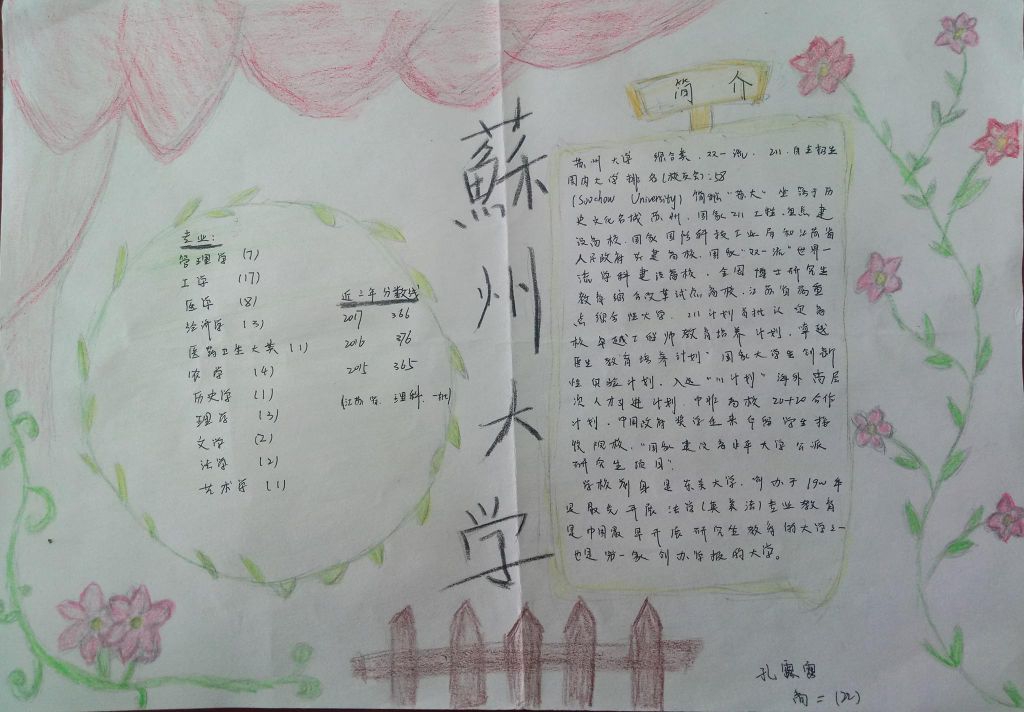 蘇州大学
专业:
管理学 (7)
工学 (17)
医学 (8)
经济学 (3)
医药卫生大类 (1)
农学 (4)
历史学 (1)
理学 (3)
文学 (2)
法学 (2)
艺术学 (1)
近三年分数线
2017 366
2016 376
2015 365
(江苏省、理科、一批)
简介
苏州大学 综合类、双一流、211、自主招生
国内大学排名(校友会):58
(Soochow University) 简称"苏大" 坐落于历
史文化名城苏州、国家211工程、重点建
设高校、国家国防科技工业局和江苏省
人民政府共建高校、国家"双一流"世界一
流学科建设高校、全国博士研究生
教育综合改革试点高校、江苏省属重
点综合性大学、211计划首批认定高
校卓越工程师教育培养计划、卓越
医生教育培养计划、国家大学生创新
性实验计划、入选"111计划"海外高层
次人才引进计划、中非高校20+20合作
计划、中国政府奖学金来华留学生接
收院校、"国家建设高水平大学公派
研究生项目".
学校前身是东吴大学,创办于1900年
是最先开展法学(英美法)专业教育
是中国最早开展研究生教育的大学之一
也是第一家创办学报的大学。
孔露露
(22)